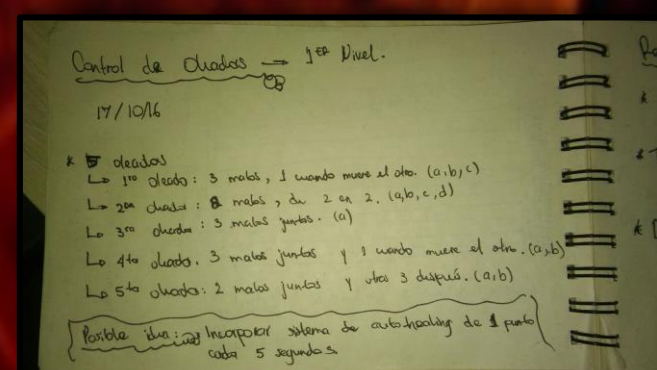 Control de Oleadas → 1ER Nivel.
17/10/16
* 5 oleadas
↳ 1ra oleada: 3 malos, 1 cuando muere el otro. (a,b,c)
↳ 2da oleada: 8 malos, de 2 en 2. (a,b,c,d)
↳ 3ra oleada: 3 malos juntos. (a)
↳ 4ta oleada. 3 malos juntos y 1 cuando muere el otro. (a,b)
↳ 5ta oleada: 2 malos juntos y otros 3 después. (a,b)
Posible idea: Incorporar sistema de autohealing de 1 punto
cada 5 segundos